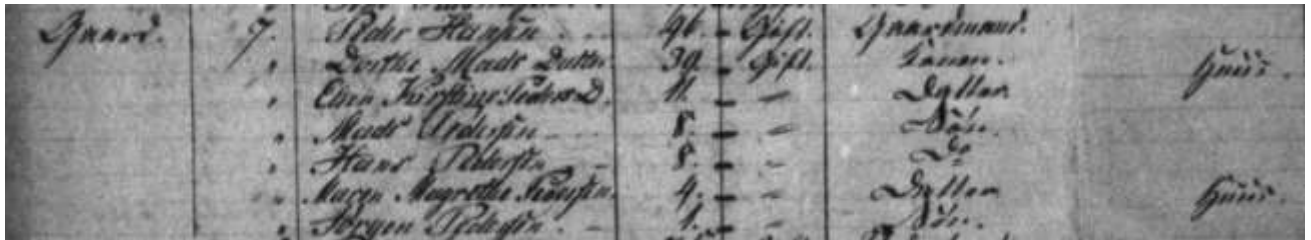 Gaard. 7. Peder Hansen 46. Gift. Gaardmand.
Dorthe Mads Datter 39. Gift. Konen.
Kirstine Peders D. 11. - Datter
Mads Pedersen 8. - Søn.
Hans Pedersen 8. - Do
Maren Magrethe 4. - Datter
Jørgen Pedersen 1. - Søn.